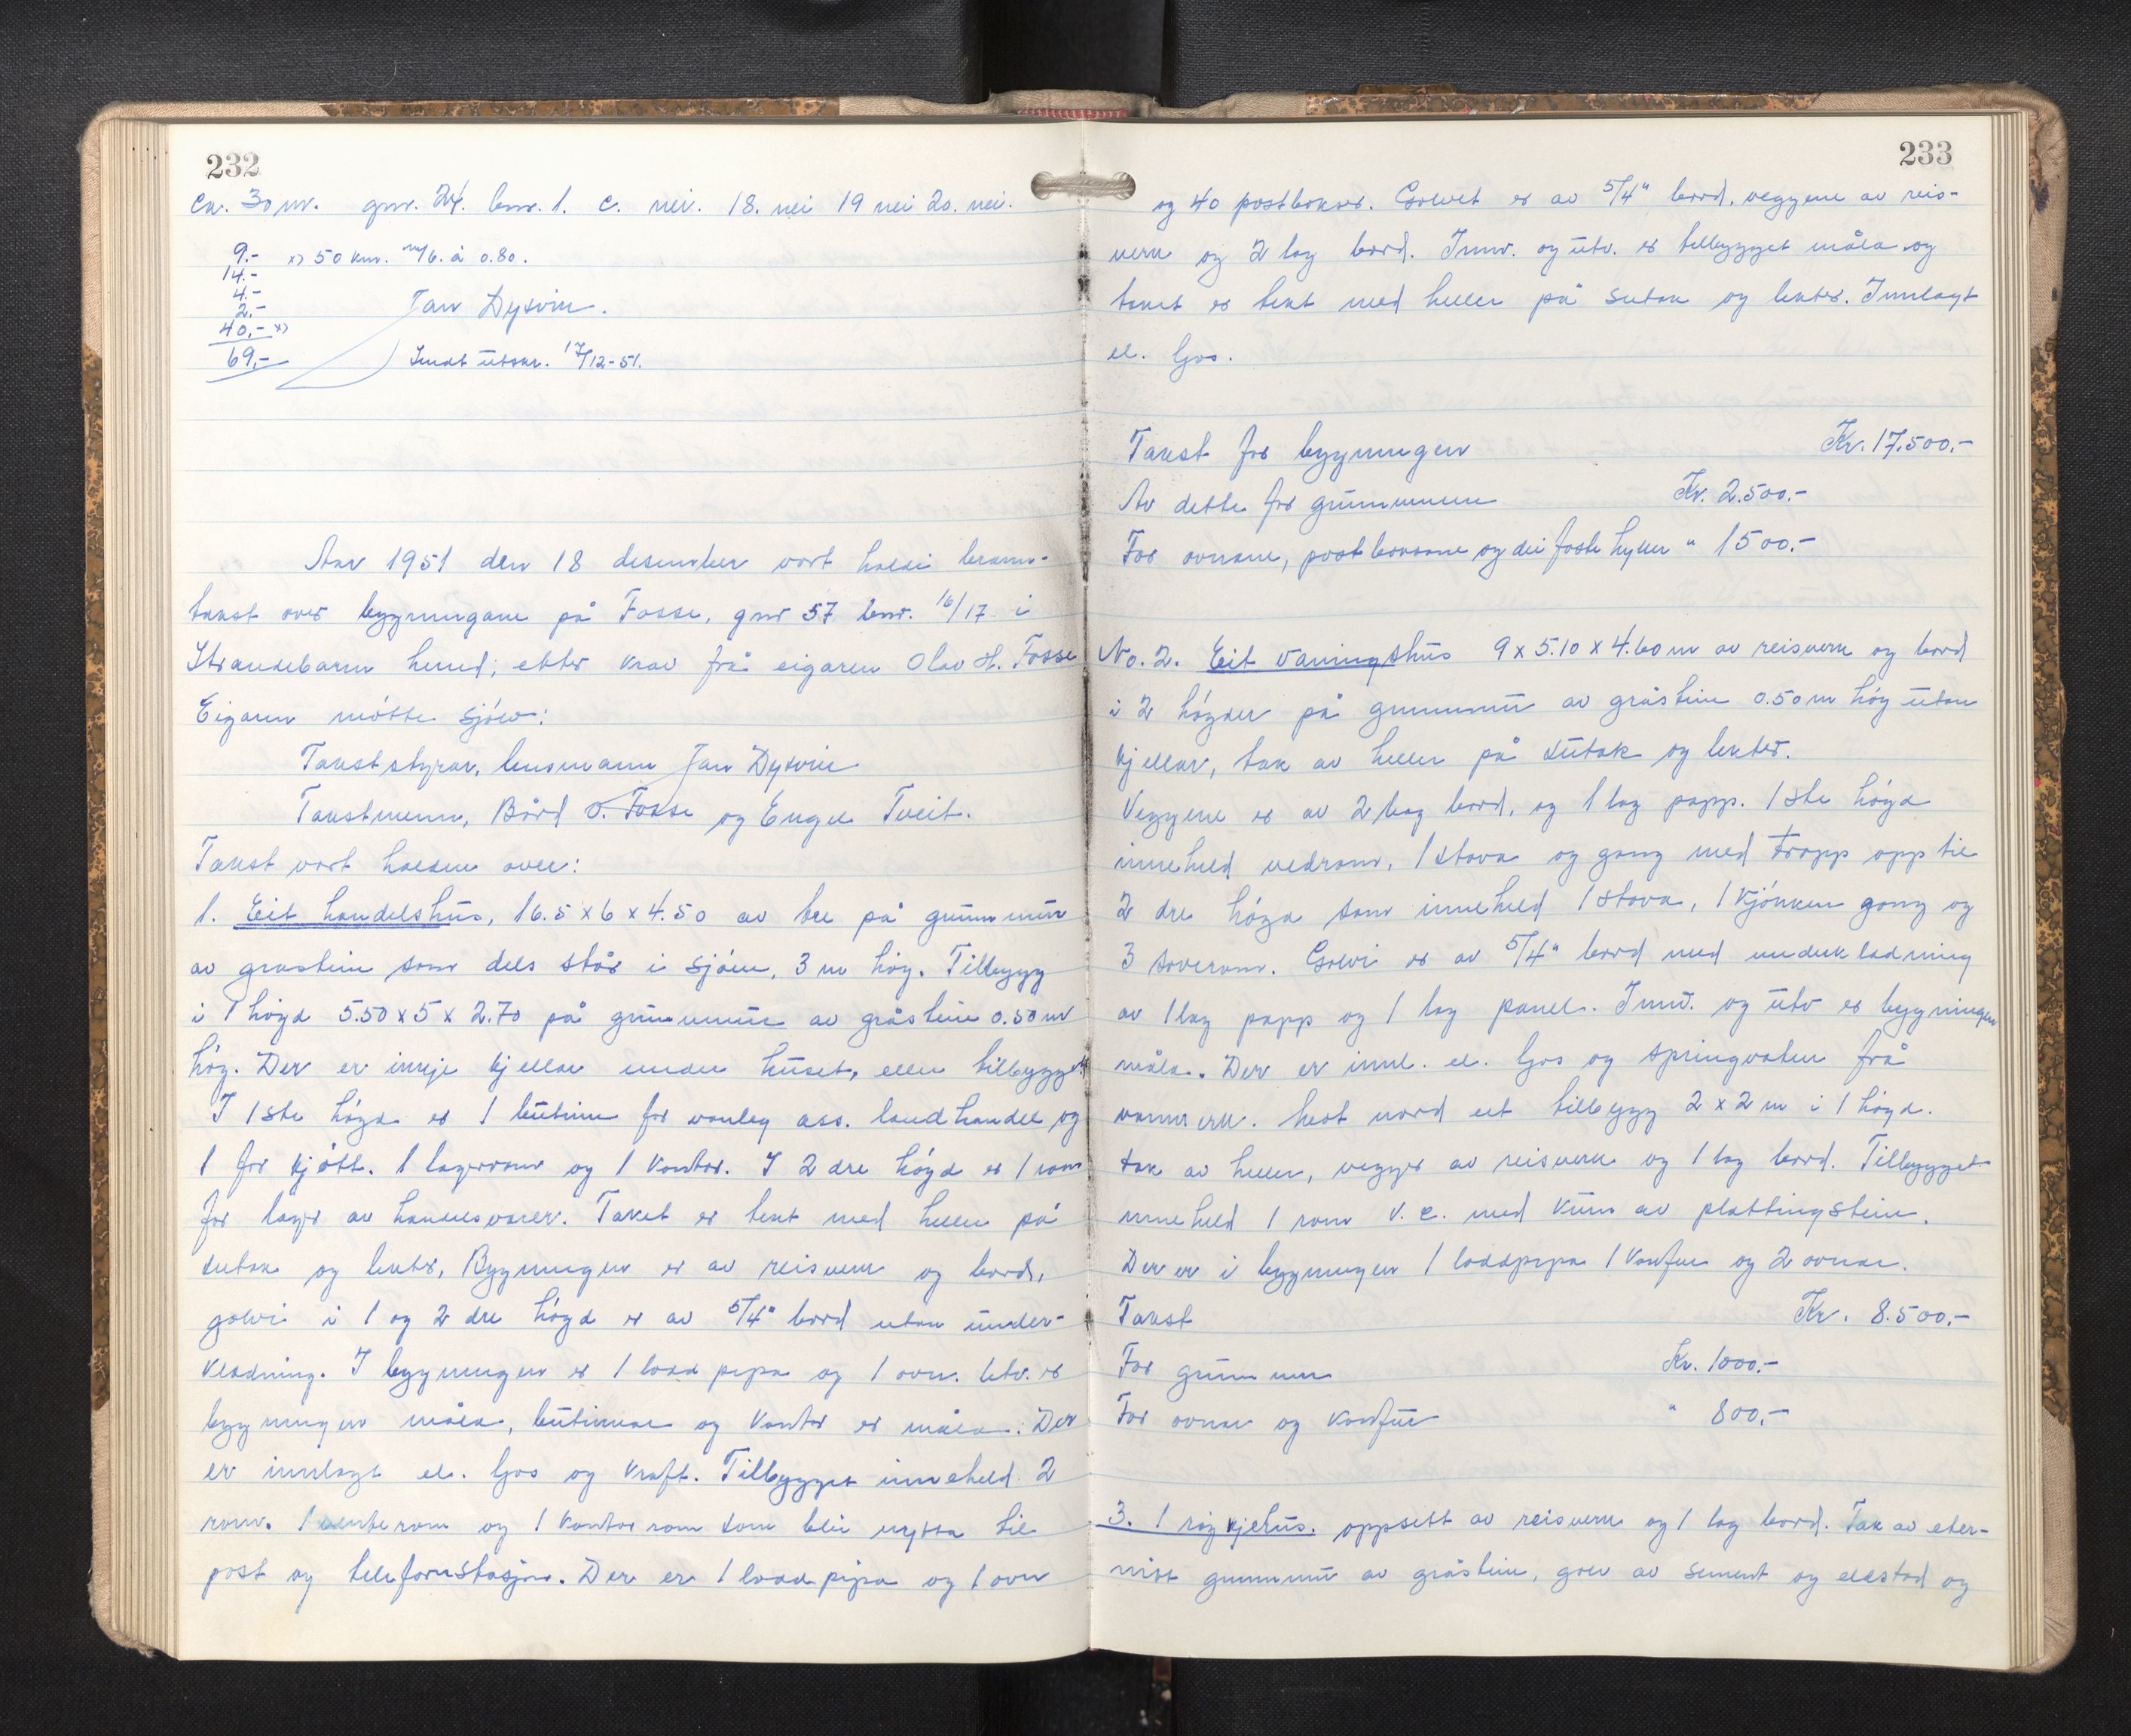 232
ca. 30 m. gnr. 24. bnr. 1. c. nei. 18. nei 19 nei 20. nei.
9.- x) 50 km. m/6. à 0.80.
14.-
4.-
2.- Jan Dysvik.
40,- x)
69,- Sendt utskr. 17/12-51.
Aar 1951 den 18 desember vart halde brann-
takst over bygningane på Fosse, gnr 57 bnr. 16/17 i
Strandebarm herad, etter krav frå eigaren Olav H. Fosse
Eigaren møtte sjølv:
Takststyrar, lensmann Jan Dysvik
Takstmenn, Bård O. Fosse og Engel Tveit.
Takst vart halden over:
1. Eit handelshus, 16.5 x 6 x 4.50 av tre på grunnmur
av grastein som dels står i sjøen, 3 m høg. Tilbygg
i 1 høgd 5.50 x 5 x 2.70 på grunnmur av gråstein 0.50 m
høg. Der er inkje kjellar under huset, eller tilbygget
I 1ste høgd er 1 butikk for vanleg ass. landhandel og
1 for kjøtt. 1 lagerrom og 1 kontor. I 2 dre høgd er 1 rom
for lager av handelsvarer. Taket er tekt med heller på
sutak og lekter, Bygningen er av reisverk og bord,
golvi i 1 og 2 dre høgd er av 5/4" bord utan under-
kledning. I bygningen er 1 lodd pipa og 1 ovn. Utv. er
bygningen måla, butikkar og kontor er måla. Der
er innlagt el. ljos og kraft. Tilbygget inneheld 2
rom. 1 venterom og 1 kontorrom som blir nytta til
post og telefonstasjon. Der er 1 loddpipa og 1 ovn
233
og 40 postboksar. Golvet er av 5/4" bord, veggene av reis-
verk og 2 lag bord. Innv. og utv. er tilbygget måla og
taket er tekt med heller på sutak og lekter. Innlagt
el. ljos.
Takst for bygningen Kr. 17.500.-
Av dette for grunnmuren Kr. 2.500.-
For ovnane, postboksane og dei faste hyller " 1500.-
No. 2. Eit våningshus 9 x 5.10 x 4.60 m av reisverk og bord
i 2 høgder på grunnmur av gråstein 0.50 m høg utan
kjellar, tak av heller på sutak og lekter.
Veggene er av 2 lag bord, og 1 lag papp. 1ste høgd
inneheld vedrom, 1 stova og gang med tropp opp til
2 dre høgd som inneheld 1 stova, 1 kjøkken gang og
3 soverom. Golvi er av 5/4" bord med underkledning
av 1 lag papp og 1 lag panel. Innv. og utv er bygningen
måla. Der er innl. el. ljos og springvatn frå
vannverk. Mot nord eit tilbygg 2 x 2 m i 1 høgd.
tak av heller, vegger av reisverk og 1 lag bord. Tilbygget
inneheld 1 rom v. c. med kum av plattingstein.
Der er i bygningen 1 loddpipa 1 komfur og 2 ovnar.
Takst Kr. 8.500.-
For grunnmur Kr. 1000.-
For ovnar og komfur " 800.-
3. 1 røykjehus. oppsett av reisverk og 1 lag bord. Tak av eter-
nitt grunnmur av gråstein, golv av sement og eldstad og